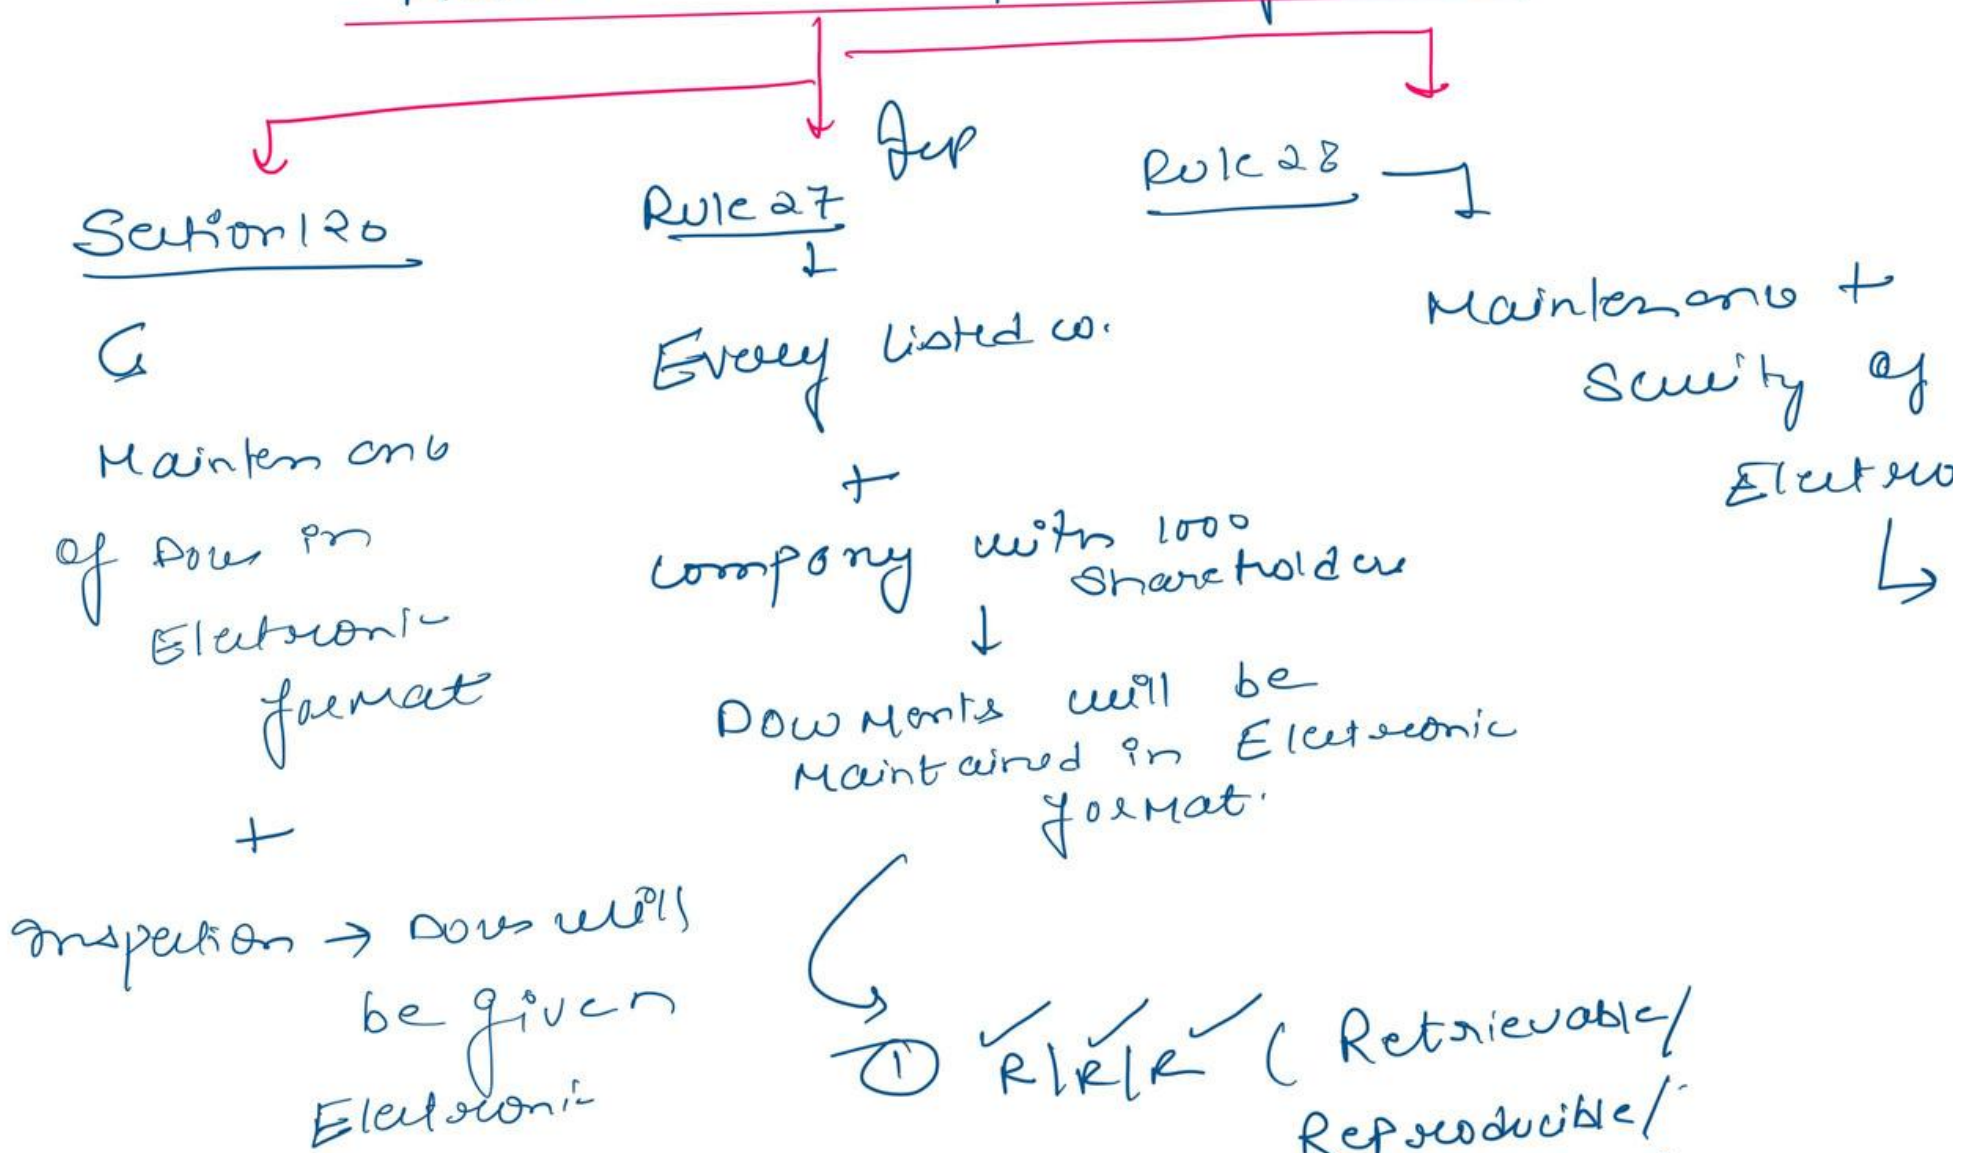 Section 120
Maintenance
of Docs in
Electronic
format
+
Inspection → Docs will
be given
Electronic
Rule 27 Imp
↓
Every listed co.
+
company with 1000
Shareholders
↓
Documents will be
Maintained in Electronic
format.
① R/R/R ( Retrievable/
Reproducible/
Rule 28
Maintenance +
Security of
Electro